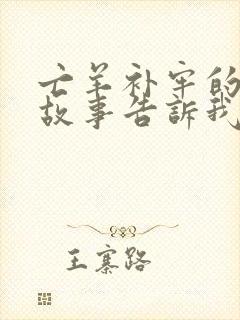 亡羊补牢的
故事告訴我
王寨路